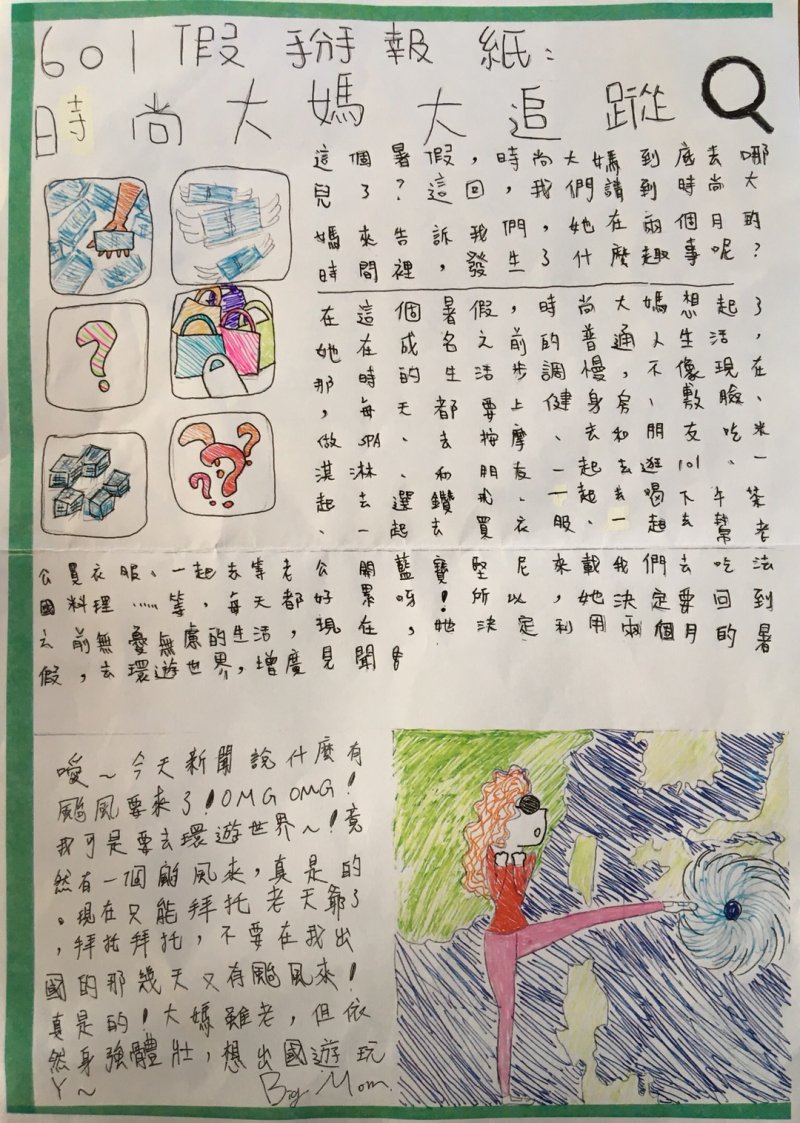 601假掰報紙:
時尚大媽大追蹤
這個暑假,時尚大媽到底去哪
兒了?這回,我們請到時尚大
媽來告訴我們,她在兩個月的
時間裡,發生了什麼趣事呢?
在這個暑假,時尚大媽想起了
她在成名之前的普通人生活,
那時的生活步調慢,不像現在
,每天都要上健身房、敷臉、
做SPA、去按摩、去和朋友吃米
淇淋、和朋友一起去逛101、一
起去選鑽戒、一起去喝下午茶
、一起去買衣服、一起去幫老
公買衣服、一起去等老公開藍寶堅尼來載我們去吃法
國料理……等,每天都好累呀!所以,她決定要回到
之前無憂無慮的生活,現在,她決定利用兩個月的暑
假,去環遊世界,增廣見聞
噯~今天新聞說什麼有
颱風要來了!OMG OMG!
我可是要去環遊世界~!竟
然有一個颱風來,真是的
。現在只能拜托老天爺了
,拜托拜托,不要在我出
國的那幾天又有颱風來!
真是的!大媽雖老,但依
然身強體壯,想出國遊玩
Y~
Big Mom.
$
$